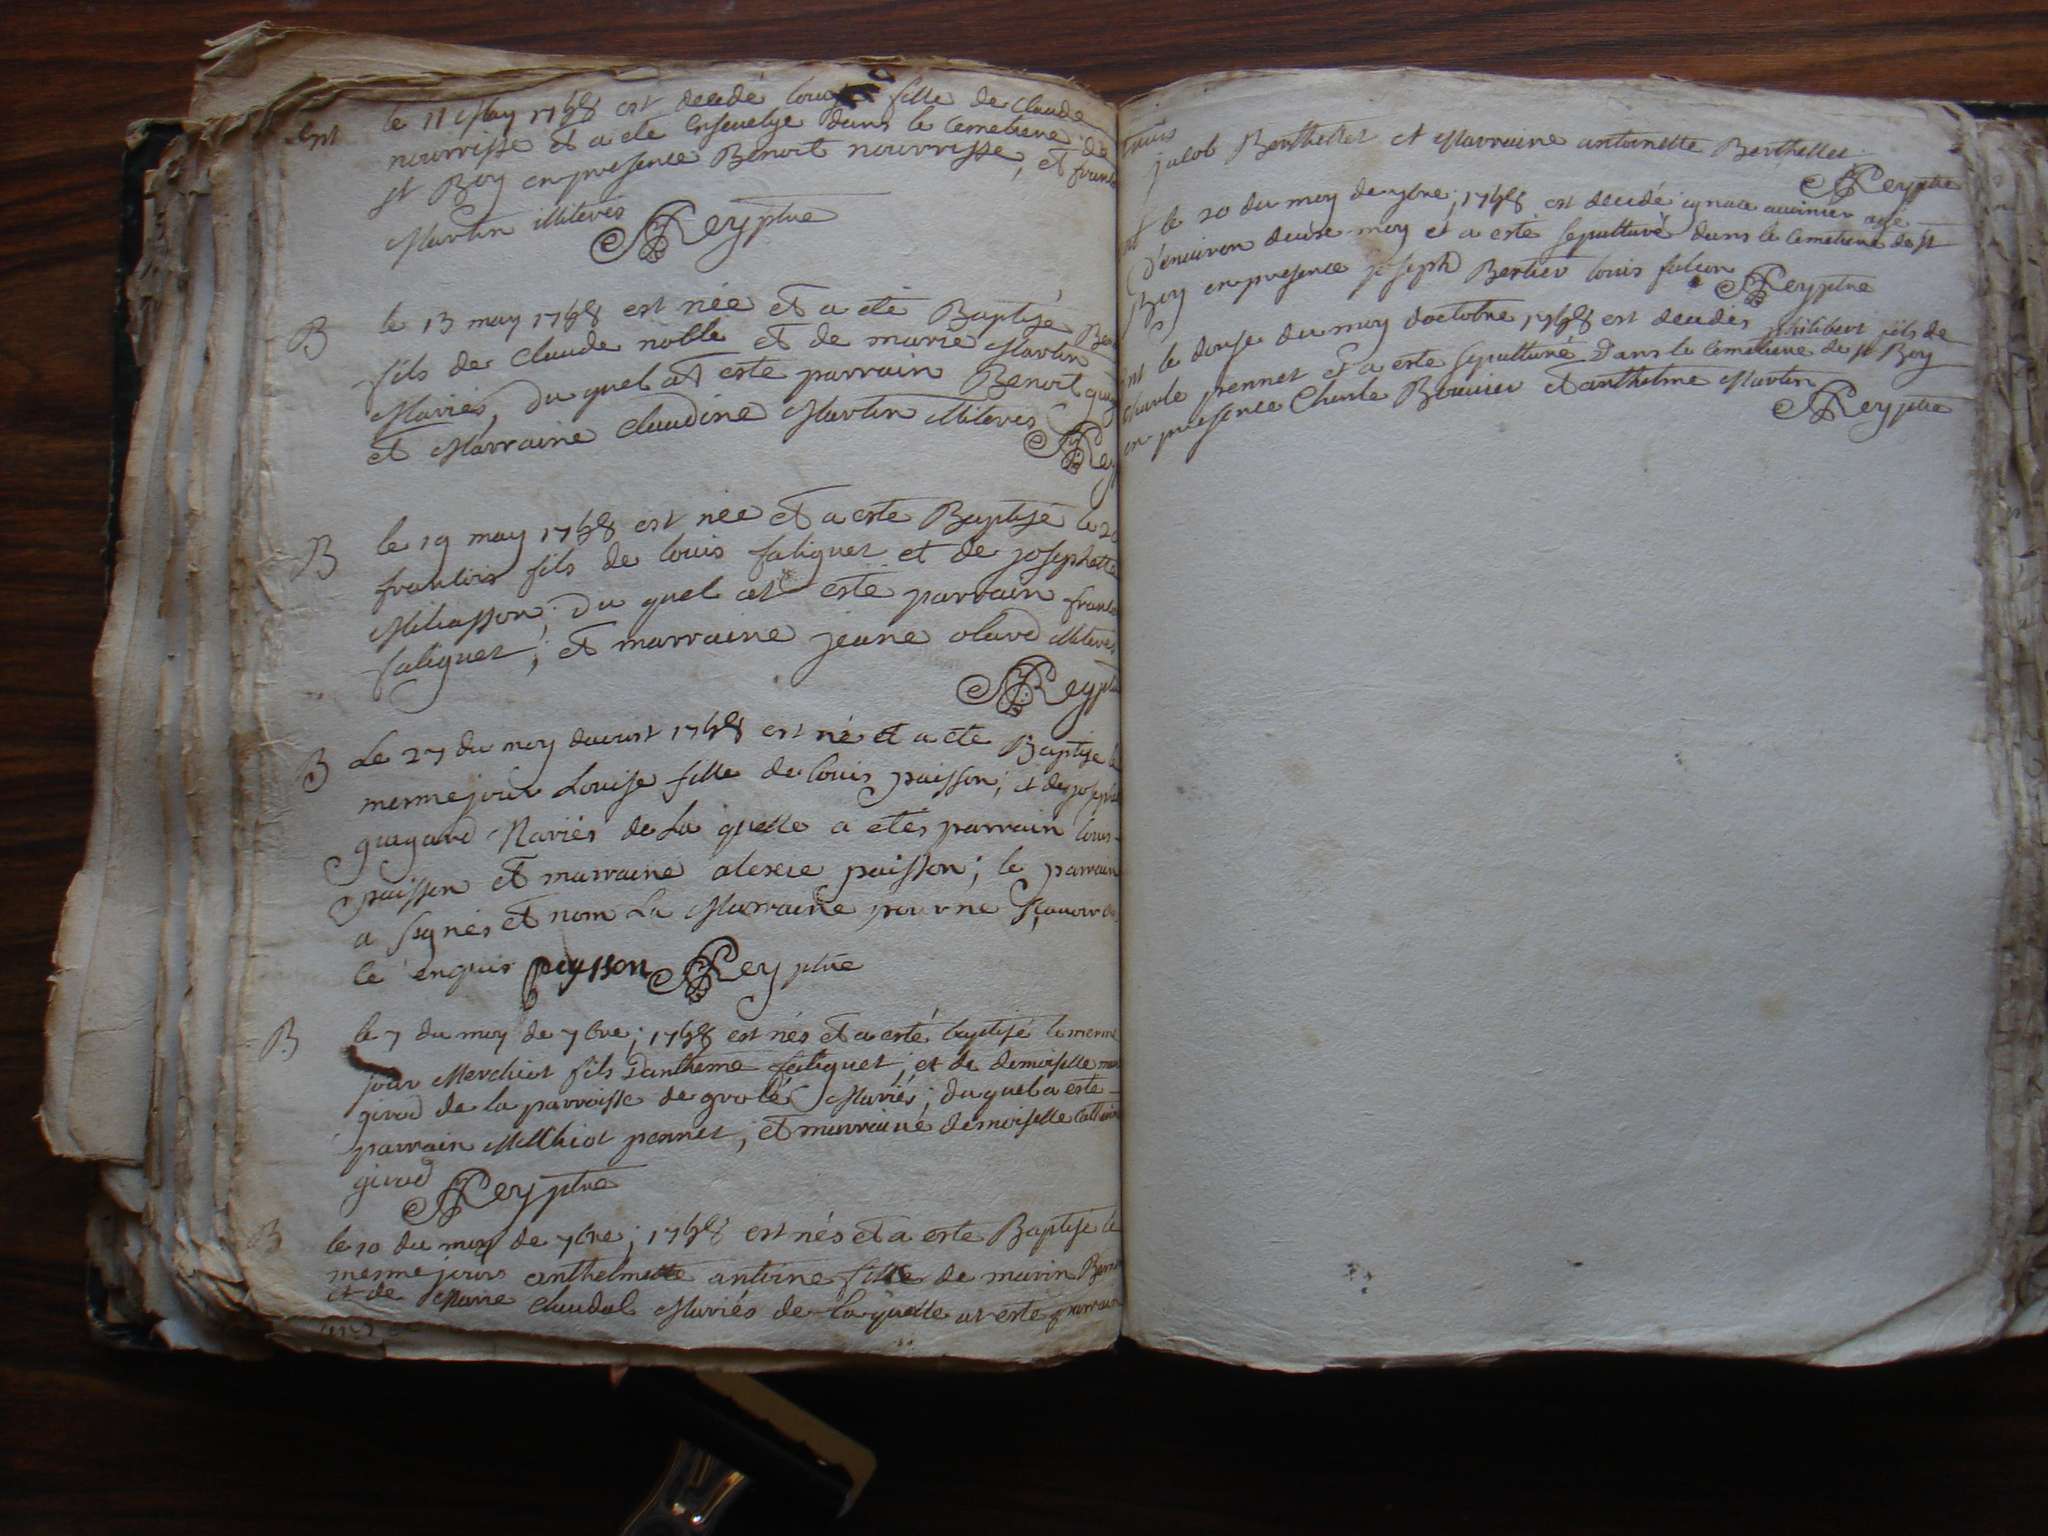 ent
le 11 May 1768 est decedé fille de claude
nourrisse et a ete ensevelye dans le cemetiere de
st Boy en presence Benoit nourrisse, et
Martin illiteres Rey ptre
B
le 13 may 1768 est née et a eté Baptisé
fils de claude noble et de marie Martin
Mariés, du quel at este parrain Benoit
et Marraine claudine Martin illiteres
Rey
B
le 19 may 1768 est née et a este Baptisé le 20
francois fils de louis faliguet et de josephette
du quel at este parrain
faliguet; et marraine jeane olard illiteres
Rey ptre
B
Le 27 du moy daoust 1768 est né et a ete Baptise le
mesme jour Louise fille de louis paisson; et de
gagard Mariés de la quelle a etés parrain louis
paisson et marraine alexie paisson; le parrain
a signés et nom la Marraine pour ne scavoir
ce enquis peysson Rey ptre
B
le 7 du moy de 7bre; 1768 est nés et a esté baptisé le mesme
jour Merchiot fils Dantheme faliguet; et de demoiselle
girod de la parroisse de grolé Mariés; du quel a este
parrain Melchiot pennet; et marraine demoiselle
girod Rey ptre
B
le 10 du moy de 7bre; 1768 est nés et a este Baptise le
mesme jours anthelmette antoine fille de marin
et de Marie claudal Mariés de la quelle at este parrain
jacob Berthellet et Marraine antoinette Berthellet
Rey ptre
le 20 du moy de 7bre; 1768 est decedé agé
d'environ deuse moy et a esté sepulturé dans le cemetiere de st
Boy en presence joseph Bertier louis falcon Rey ptre
ent le douse du moy doctobre 1768 est decedés philibert fils de
charle pennet et a este sepulturé Dans le cemetiere de st Boy
en presence Charle Bouvier et anthelme Martin
Rey ptre